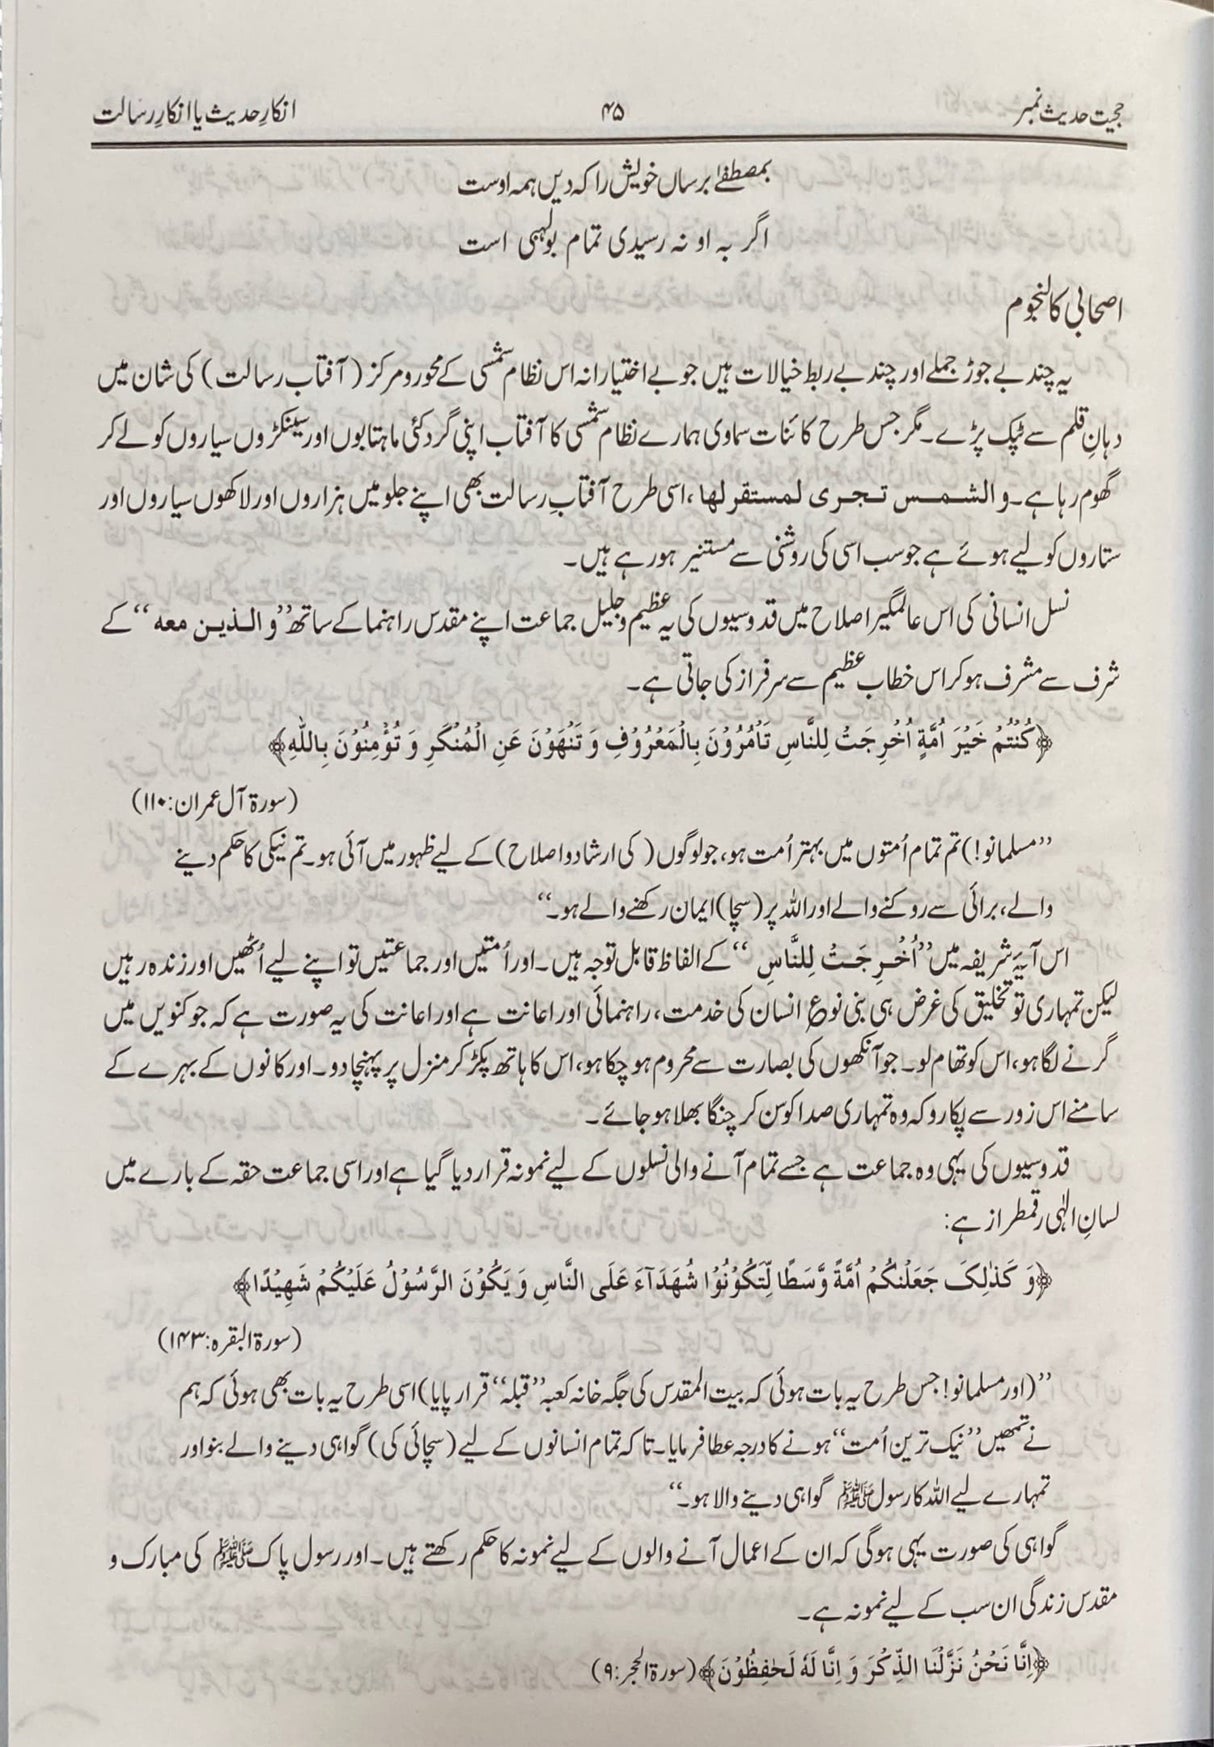 حجیت حدیث نمبر ۴۵ انکارِ حدیث یا انکارِ رسالت
بمصطفیٰ برساں خویش را کہ دیں ہمہ اوست
اگر بہ او نہ رسیدی تمام بولہبی است
اصحابی کالنجوم
یہ چند بے جوڑ جملے اور چند بے ربط خیالات ہیں جو بے اختیارانہ اس نظام شمسی کے محور و مرکز (آفتاب رسالت) کی شان میں
دہانِ قلم سے ٹپک پڑے۔ مگر جس طرح کائنات سماوی ہمارے نظام شمسی کا آفتاب اپنی گرد کئی ماہتابوں اور سینکڑوں سیاروں کو لے کر
گھوم رہا ہے۔ والشمس تجری لمستقرلها، اسی طرح آفتابِ رسالت بھی اپنے جلو میں ہزاروں اور لاکھوں سیاروں اور
ستاروں کو لیے ہوئے ہے جو سب اسی کی روشنی سے مستنیر ہو رہے ہیں۔
نسل انسانی کی اس عالمگیر اصلاح میں قدوسیوں کی یہ عظیم و جلیل جماعت اپنے مقدس راہنما کے ساتھ ’’والذین معه‘‘ کے
شرف سے مشرف ہو کر اس خطاب عظیم سے سرفراز کی جاتی ہے۔
﴿كُنْتُمْ خَيْرَ اُمَّةٍ اُخْرِجَتْ لِلنَّاسِ تَاْمُرُوْنَ بِالْمَعْرُوْفِ وَ تَنْهَوْنَ عَنِ الْمُنْكَرِ وَ تُؤْمِنُوْنَ بِاللّٰهِ﴾
(سورۃ آل عمران: ۱۱۰)
’’مسلمانو!) تم تمام اُمتوں میں بہتر اُمت ہو، جو لوگوں (کی ارشاد و اصلاح) کے لیے ظہور میں آئی ہو۔ تم نیکی کا حکم دینے
والے، برائی سے روکنے والے اور اللہ پر (سچا) ایمان رکھنے والے ہو۔‘‘
اس آیۂ شریفہ میں ’’اُخْرِجَتْ لِلنَّاسِ‘‘ کے الفاظ قابل توجہ ہیں۔ اور اُمتیں اور جماعتیں تو اپنے لیے اُٹھیں اور زندہ رہیں
لیکن تمہاری تو تخلیق کی غرض ہی بنی نوعِ انسان کی خدمت، راہنمائی اور اعانت ہے اور اعانت کی یہ صورت ہے کہ جو کنویں میں
گرنے لگا ہو، اس کو تھام لو۔ جو آنکھوں کی بصارت سے محروم ہو چکا ہو، اس کا ہاتھ پکڑ کر منزل پر پہنچا دو۔ اور کانوں کے بہرے کے
سامنے اس زور سے پکارو کہ وہ تمہاری صدا کو سن کر چنگا بھلا ہو جائے۔
قدوسیوں کی یہی وہ جماعت ہے جسے تمام آنے والی نسلوں کے لیے نمونہ قرار دیا گیا ہے اور اسی جماعت حقہ کے بارے میں
لسانِ الٰہی رقمطراز ہے:
﴿وَ كَذٰلِكَ جَعَلْنٰكُمْ اُمَّةً وَّسَطًا لِّتَكُوْنُوْا شُهَدَآءَ عَلَى النَّاسِ وَ يَكُوْنَ الرَّسُوْلُ عَلَيْكُمْ شَهِيْدًا﴾
(سورۃ البقرہ: ۱۴۳)
’’(اور مسلمانو! جس طرح یہ بات ہوئی کہ بیت المقدس کی جگہ خانہ کعبہ ’’قبلہ‘‘ قرار پایا) اسی طرح یہ بات بھی ہوئی کہ ہم
نے تمھیں ’’نیک ترین اُمت‘‘ ہونے کا درجہ عطا فرمایا۔ تاکہ تمام انسانوں کے لیے (سچائی کی) گواہی دینے والے بنو اور
تمہارے لیے اللہ کا رسول ﷺ گواہی دینے والا ہو۔‘‘
گواہی کی صورت یہی ہوگی کہ ان کے اعمال آنے والوں کے لیے نمونہ کا حکم رکھتے ہیں۔ اور رسول پاک ﷺ کی مبارک و
مقدس زندگی ان سب کے لیے نمونہ ہے۔
﴿اِنَّا نَحْنُ نَزَّلْنَا الذِّكْرَ وَ اِنَّا لَهٗ لَحٰفِظُوْنَ﴾ (سورۃ الحجر: ۹)